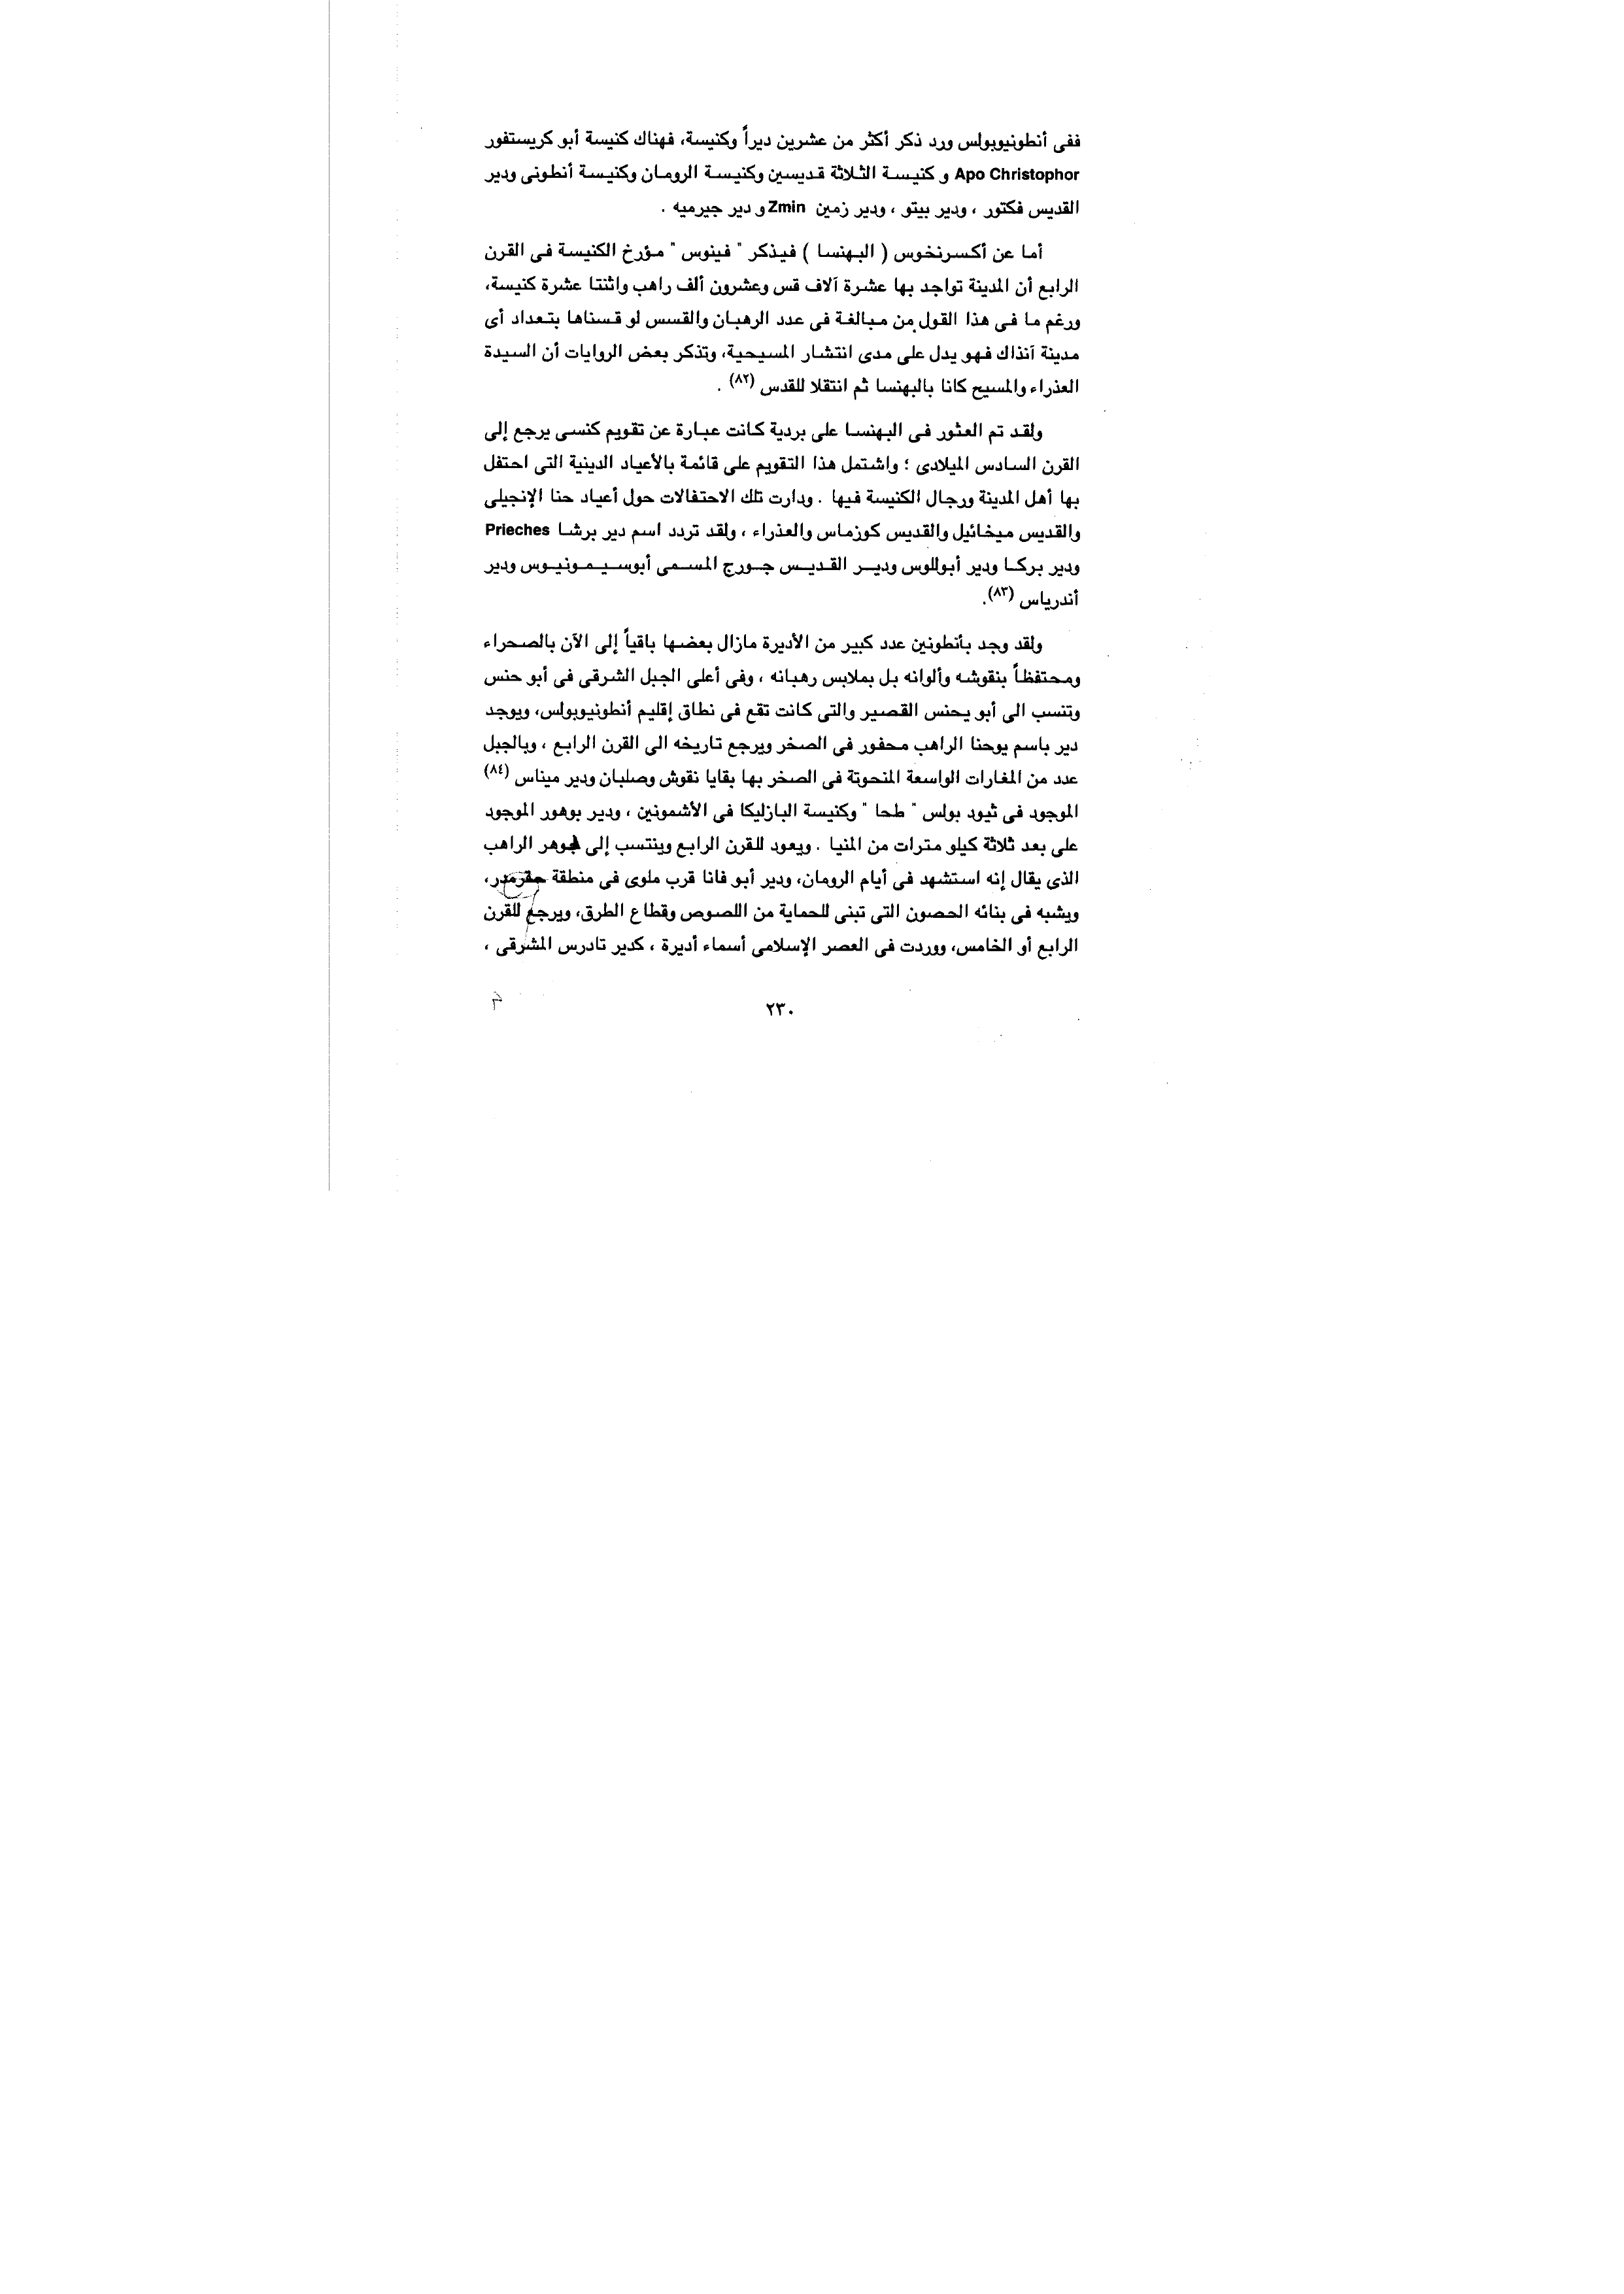 ففى أنطونيوبولس ورد ذكر أكثر من عشرين ديراً وكنيسة، فهناك كنيسة أبو كريستفور
Apo Christophor و كنيسة الثلاثة قديسين وكنيسة الرومان وكنيسة أنطونى ودير
القديس فكتور ، ودير بيتو ، ودير زمين Zmin و دير جيرميه .
أما عن أكسرنخوس ( البهنسا ) فيذكر " فينوس " مؤرخ الكنيسة فى القرن
الرابع أن المدينة تواجد بها عشرة آلاف قس وعشرون ألف راهب واثنتا عشرة كنيسة،
ورغم ما فى هذا القول من مبالغة فى عدد الرهبان والقسس لو قسناها بتعداد أى
مدينة آنذاك فهو يدل على مدى انتشار المسيحية، وتذكر بعض الروايات أن السيدة
العذراء والمسيح كانا بالبهنسا ثم انتقلا للقدس (٨٢) .
ولقد تم العثور فى البهنسا على بردية كانت عبارة عن تقويم كنسى يرجع إلى
القرن السادس الميلادى ؛ واشتمل هذا التقويم على قائمة بالأعياد الدينية التى احتفل
بها أهل المدينة ورجال الكنيسة فيها . ودارت تلك الاحتفالات حول أعياد حنا الإنجيلى
والقديس ميخائيل والقديس كوزماس والعذراء ، ولقد تردد اسم دير برشا Prieches
ودير بركا ودير أبوللوس ودير القديس جورج المسمى أبوسيمونيوس ودير
أندرياس (٨٣).
ولقد وجد بأنطونين عدد كبير من الأديرة مازال بعضها باقياً إلى الآن بالصحراء
ومحتفظاً بنقوشه وألوانه بل بملابس رهبانه ، وفى أعلى الجبل الشرقى فى أبو حنس
وتنسب الى أبو يحنس القصير والتى كانت تقع فى نطاق إقليم أنطونيوبولس، ويوجد
دير باسم يوحنا الراهب محفور فى الصخر ويرجع تاريخه الى القرن الرابع ، وبالجبل
عدد من المغارات الواسعة المنحوتة فى الصخر بها بقايا نقوش وصلبان ودير ميناس (٨٤)
الموجود فى ثيود بولس " طحا " وكنيسة البازليكا فى الأشمونين ، ودير بوهور الموجود
على بعد ثلاثة كيلو مترات من المنيا . ويعود للقرن الرابع وينتسب إلى الراهب
الذى يقال إنه استشهد فى أيام الرومان، ودير أبو فانا قرب ملوى فى منطقة
ويشبه فى بنائه الحصون التى تبنى للحماية من اللصوص وقطاع الطرق، ويرجع للقرن
الرابع أو الخامس، ووردت فى العصر الإسلامى أسماء أديرة ، كدير تادرس المشرقى ،
٢٣٠